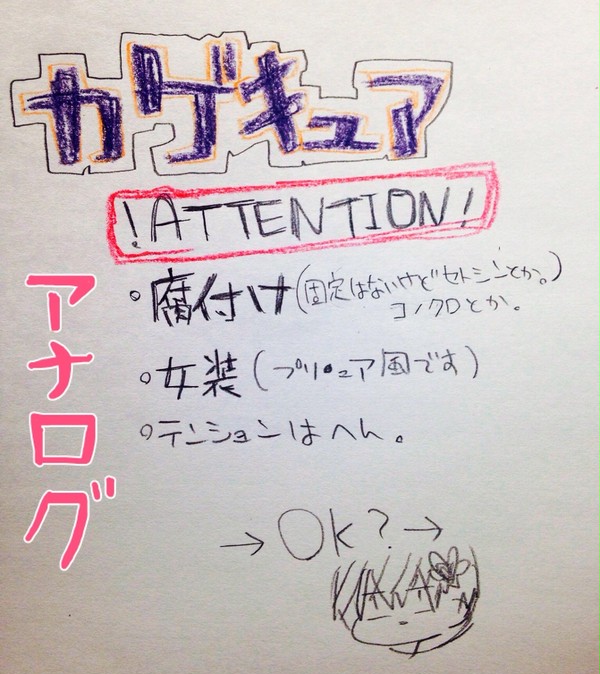 カゲキュア
!ATTENTION!
アナログ
・腐付け(固定はないけどセトシンとか。
コノクロとか。)
・女装(プリキュア風です)
・テンションはへん。
→OK?→